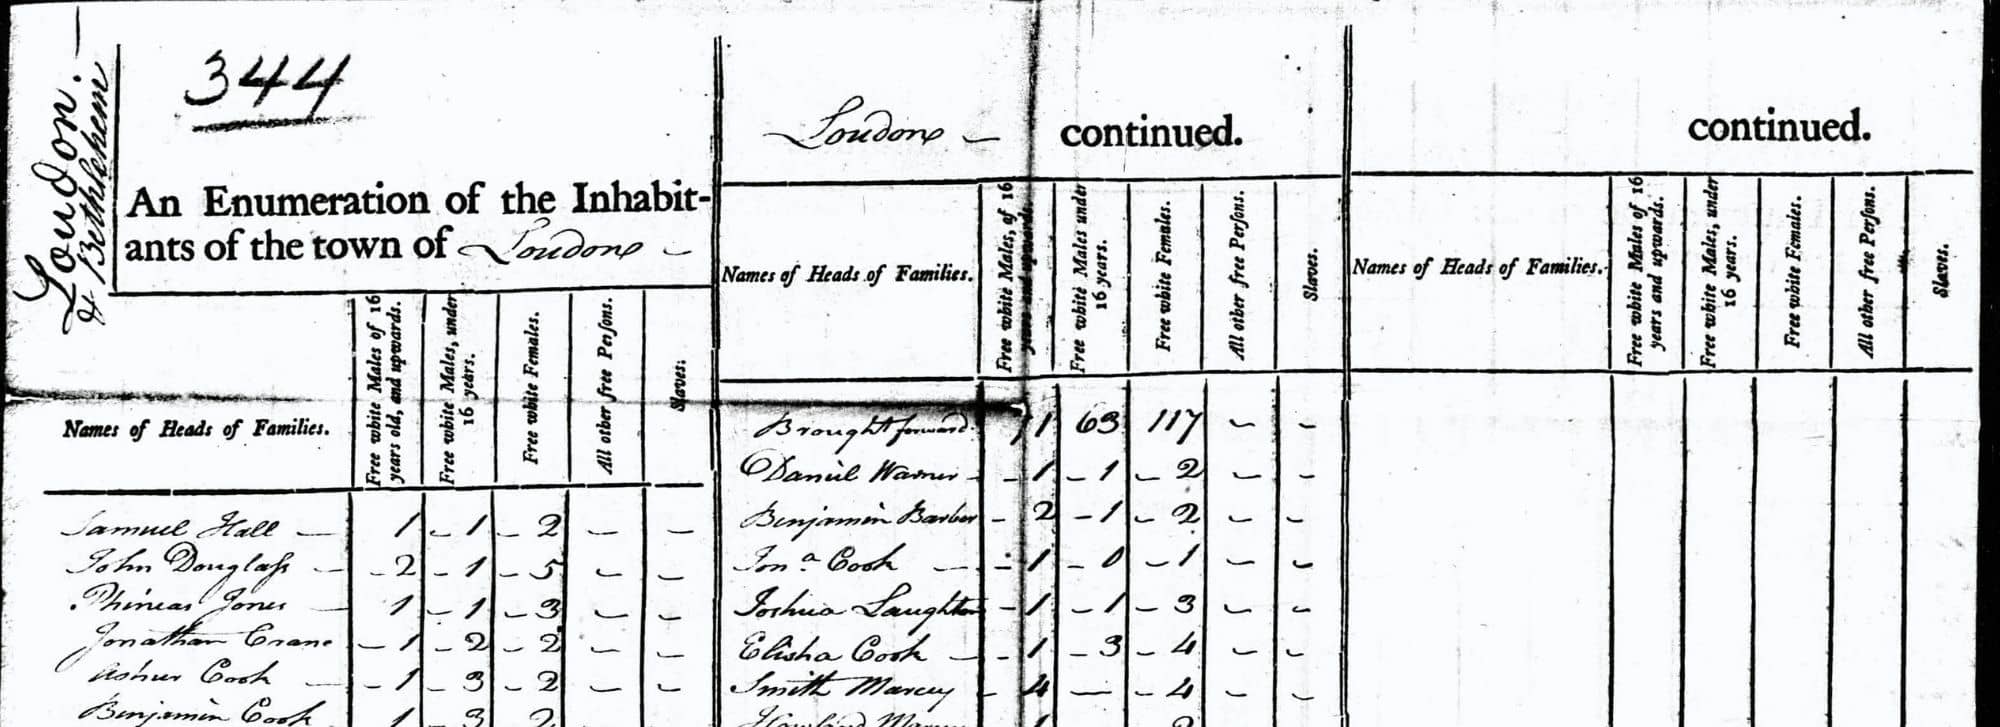 Loudon. —
& Bethlehem
344
An Enumeration of the Inhabit-
ants of the town of Loudon —
Names of Heads of Families.
Free white Males of 16
years old, and upwards.
Free white Males, under
16 years.
Free white Females.
All other free Perſons.
Slaves.
Samuel Hall — 1 – 1 – 2 — —
John Douglaſs — – 2 – 1 – 5 — —
Phineas Jones — 1 – 1 – 3 — —
Jonathan Crane – 1 – 2 – 2 — —
Asher Cook — – 1 – 3 – 2 — —
Benjamin Cook 1 – 3 2
Loudon — continued.
Names of Heads of Families.
Free white Males, of 16
years and upwards.
Free white Males under
16 years.
Free white Females.
All other free Perſons.
Slaves.
Brought forward 71 63 117 – –
Daniel Warner – – 1 – 1 – 2 – –
Benjamin Barber – 2 – 1 – 2 – –
Jonª Cook — – 1 – 0 – 1 – –
Joshua Laughton – 1 – 1 – 3 – –
Elisha Cook — – 1 – 3 – 4 – –
Smith Marcy – 4 — – 4 – –
continued.
Names of Heads of Families.
Free white Males of 16
years and upwards.
Free white Males, under
16 years.
Free white Females.
All other free Perſons.
Slaves.